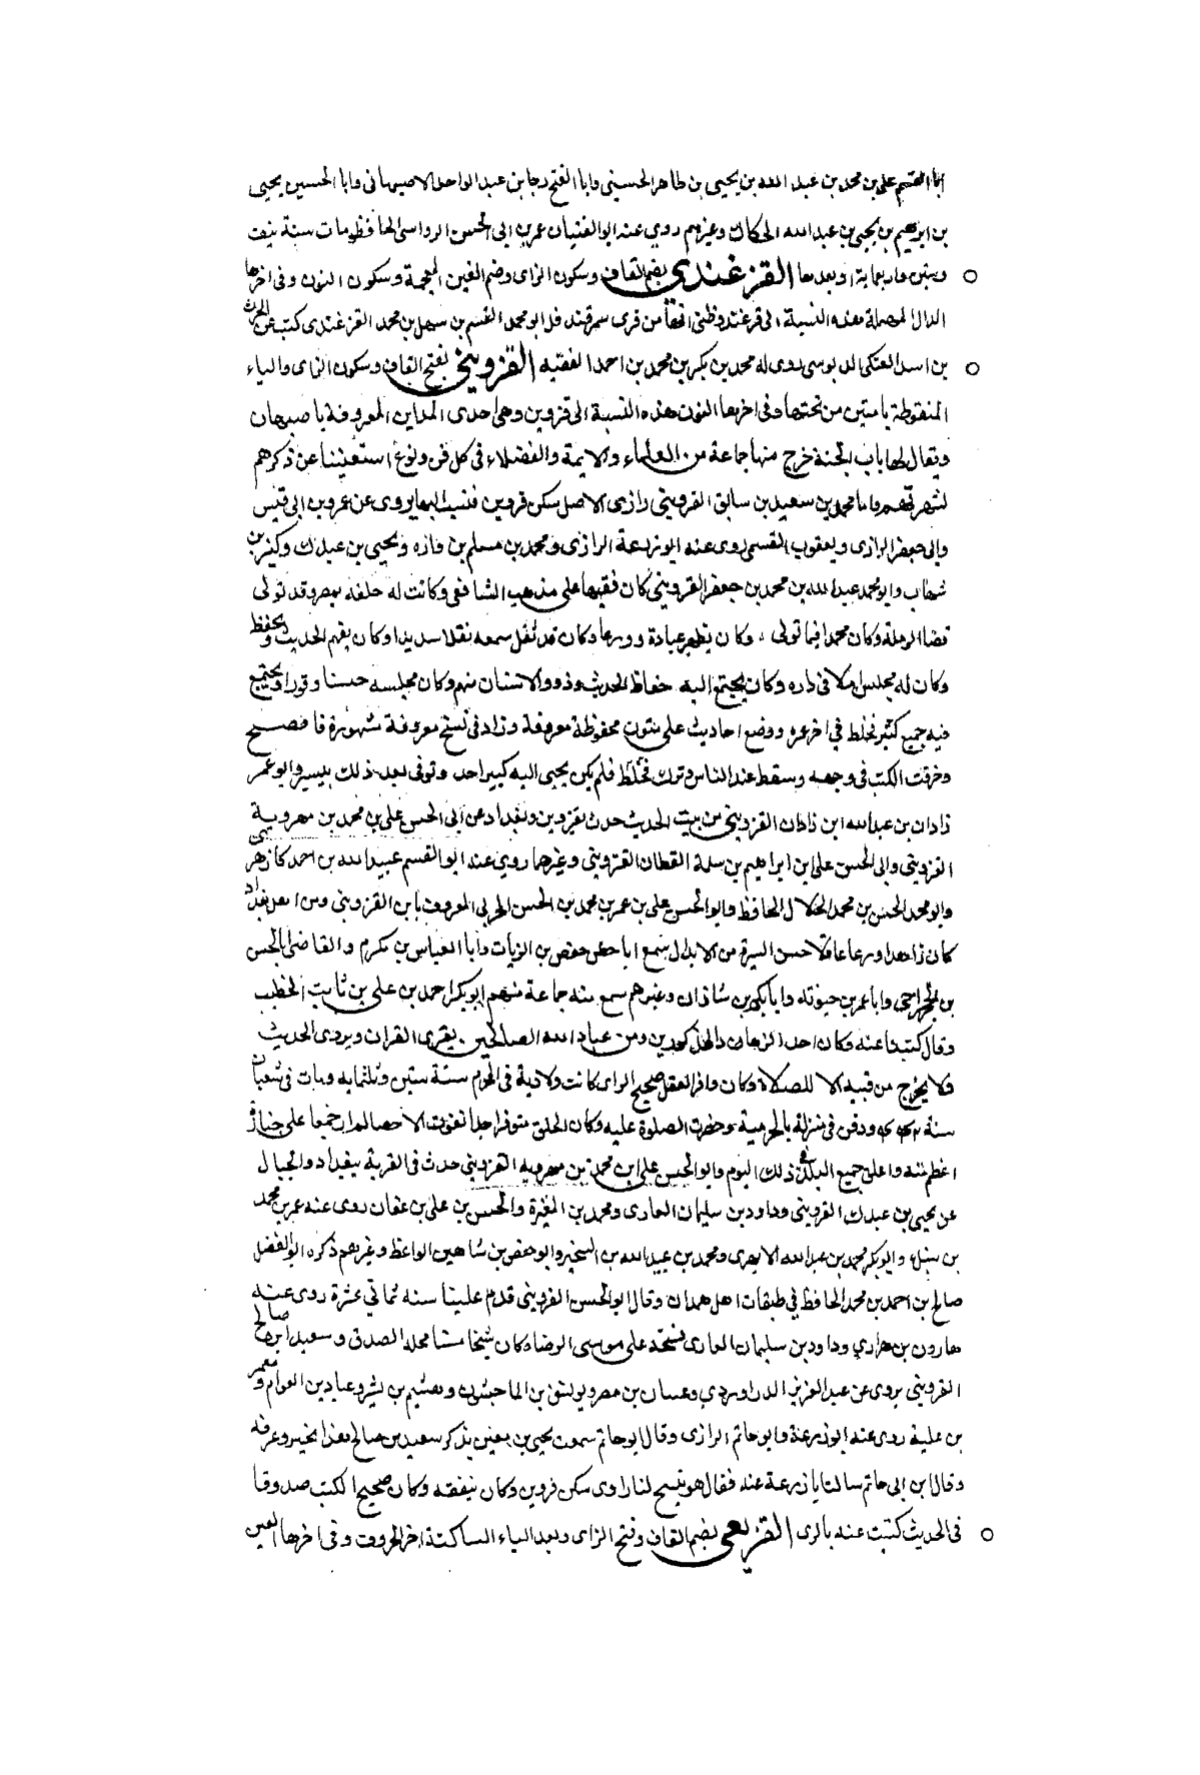 ابا القسم على بن محمد بن عبد الله بن يحيى بن طاهر الحسينى وابا الفتح رجا بن عبد الواحد الاصبهانى وابا الحسين يحيى
بن ابرهيم بن يحيى بن عبد الله الحكاك وغيرهم روى عنه ابو الفتيان عمر بن ابى الحسن الرواسى الحافظ ومات سنة نيف
وستين واربعماية او بعدها القزغندى بضم القاف وسكون الزاى وضم الغين المعجمة وسكون النون وفى اخرها
الدال المهملة هذه النسبة الى قزغند وظنى انها من قرى سمرقند منها ابو محمد القسم بن سهل بن محمد القزغندى كتب عن
بن اسد العتكى الدبوسى روى له محمد بن بكر بن محمد بن احمد الفقيه القزوينى بفتح القاف وسكون الزاى والياء
المنقوطة باثنتين من تحتها وفى اخرها النون هذه النسبة الى قزوين وهى احدى المداين المعروفة باصبهان
ويقال لها باب الجنة خرج منها جماعة من العلماء والايمة والفضلاء فى كل فن ونوع استغنينا عن ذكرهم
لشهرتهم واما محمد بن سعيد بن سابق القزوينى رازى الاصل سكن قزوين فنسب اليها يروى عن عمرو بن ابى قيس
وابى جعفر الرازى ويعقوب القمى روى عنه ابو زرعة الرازى ومحمد بن مسلم بن وازه ويحيى بن عبدك وكثير بن
شهاب وابو محمد عبد الله بن محمد بن جعفر القزوينى كان فقيها على مذهب الشافعى وكانت له حلقة بمصر وقد تولى
قضا الرملة وكان محمدا فيما تولى وكان يظهر عبادة وورعا وكان قد ثقل سمعه ثقلا شديدا وكان يفهم الحديث ويحفظ
وكان له مجلس املا فى داره وكان يجتمع اليه حفاظ الحديث وذوو الاسنان منهم وكان مجلسه حسنا وقورا ويجتمع
فيه جمع كثير فخلط فى اخر عمره ووضع احاديث على متون محفوظة معروفة وزاد فى نسخ معروفة مشهورة فافتضح
وخرقت الكتب فى وجهه وسقط عند الناس وترك فلم يكن يجيى اليه كبير احد وتوفى بعد ذلك بيسير وابو عمر
زاذان بن عبد الله ابن زاذان القزوينى من بيت الحديث حدث بقزوين وبغداد عن ابى الحسن على بن محمد بن مهرويه
القزوينى وابى الحسن على ابن ابراهيم بن سلمة القطان القزوينى وغيرهما روى عنه ابو القسم عبيد الله بن احمد الازهرى
وابو محمد الحسن بن محمد الخلال الحافظ وابو الحسن على بن عمر بن محمد بن الحسن الحربى المعروف بابن القزوينى من اهل بغداد
كان زاهدا ورعا عاقلا حسن السيرة من الابدال سمع ابا حفص بن الزيات وابا العباس بن مكرم والقاضى ابا الحسن
بن الجراحى وابا عمر بن حيويه وابا بكر بن شاذان وغيرهم سمع منه جماعة منهم ابو بكر احمد بن على بن ثابت الخطيب
وقال كتبنا عنه وكان احد الزهاد المذكورين ومن عباد الله الصالحين يقرى القران ويروى الحديث
فلا يخرج من بيته الا للصلاة وكان وافر العقل صحيح الراى كانت ولادته فى المحرم سنة ستين وثلثمايه ومات فى شعبان
سنة ودفن فى منزله بالحربية وحضرت الصلوة عليه وكان الخلق متوفرا جدا يفوت الاحصا لم ار جمعا على جنازة
اعظم منه واغلق جميع البلد فى ذلك اليوم وابو الحسن على ابن محمد بن مهرويه القزوينى حدث فى القربة ببغداد والجبال
عن يحيى بن عبدك القزوينى وداود بن سليمان الغازى ومحمد بن المغيرة والحسن بن على بن عفان روى عنه عمر بن محمد
بن سنبك وابو بكر محمد بن عبد الله الابهرى ومحمد بن عبيد الله بن الشخير وابو حفص بن شاهين الواعظ وغيرهم ذكره ابو الفضل
صالح بن احمد بن محمد الحافظ فى طبقات اهل همدان وقال ابو الحسن القزوينى قدم علينا سنه ثمانى عشرة روى عنه
هارون بن هزارى وداود بن سليمان الغازى نسخة على موسى الرضا وكان شيخا مسنا محله الصدق وسعيد ابن صالح
القزوينى يروى عن عبد العزيز الدراوردى وغسان بن مضر ويوسف بن الماجشون وهشيم بن بشير وعباد بن العوام ومعمر
بن علية روى عنه ابو زرعة وابو حاتم الرازى وقال ابو حاتم سمعت يحيى بن معين يذكر سعيد بن صالح هذا بخير وعرفه
وقال ابن ابى حاتم سالت ابا زرعة عنه فقال هو شيخ لنا رازى سكن قزوين وكان ثقة وكان صحيح الكتب صدوقا
فى الحديث كتبت عنه بالرى القزيعى بضم القاف وفتح الزاى وبعد الياء الساكنة اخر الحروف وفى اخرها العين